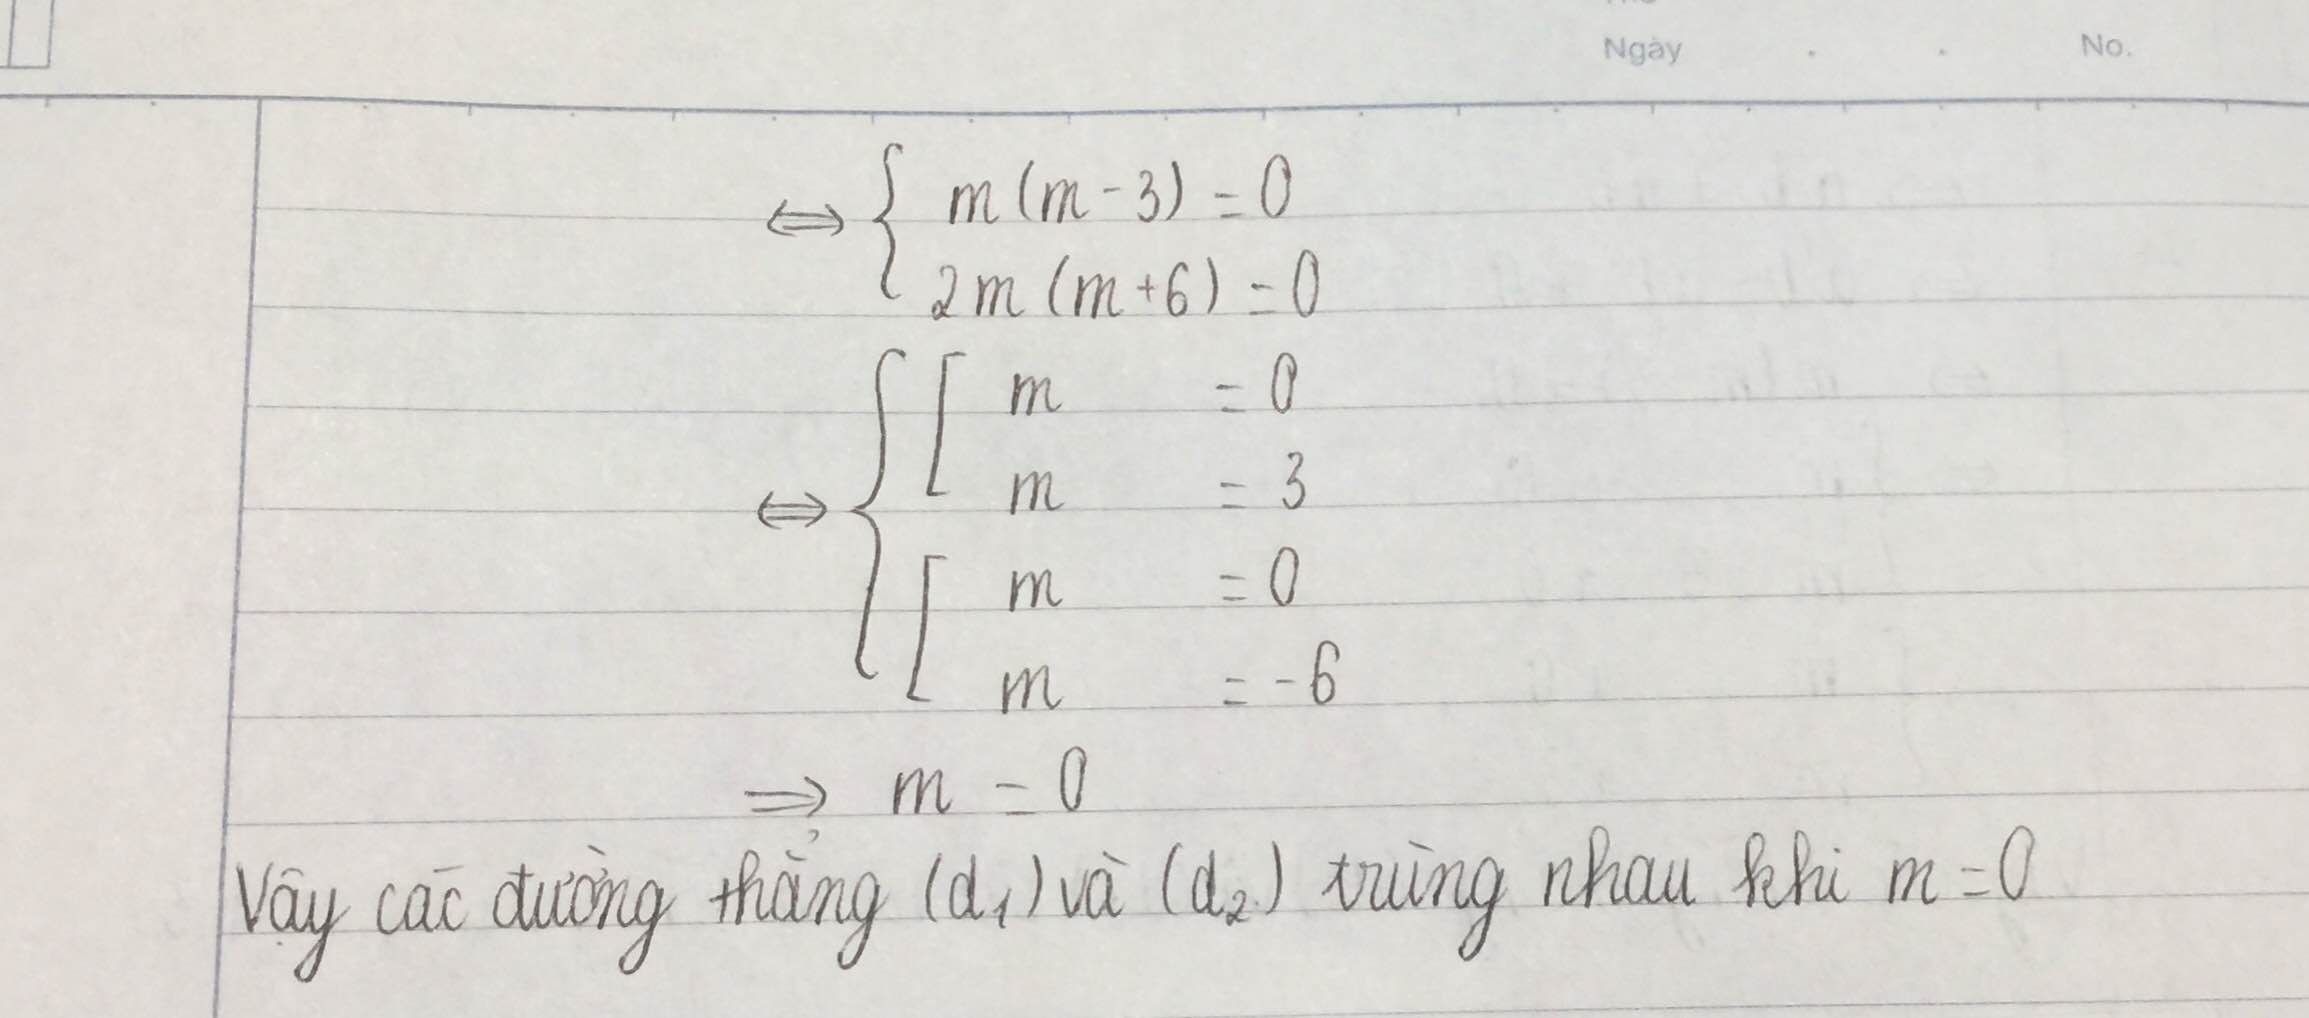 Ngày . . No.
⇔ { m (m - 3) = 0
2m (m + 6) = 0
[ m = 0
⇔ { m = 3
[ m = 0
m = -6
⇒ m = 0
Vậy các đường thẳng (d₁) và (d₂) trùng nhau khi m = 0